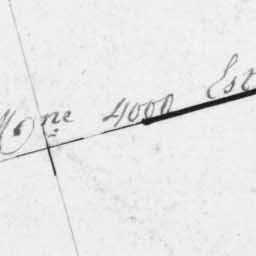 Mgne 4000 Est